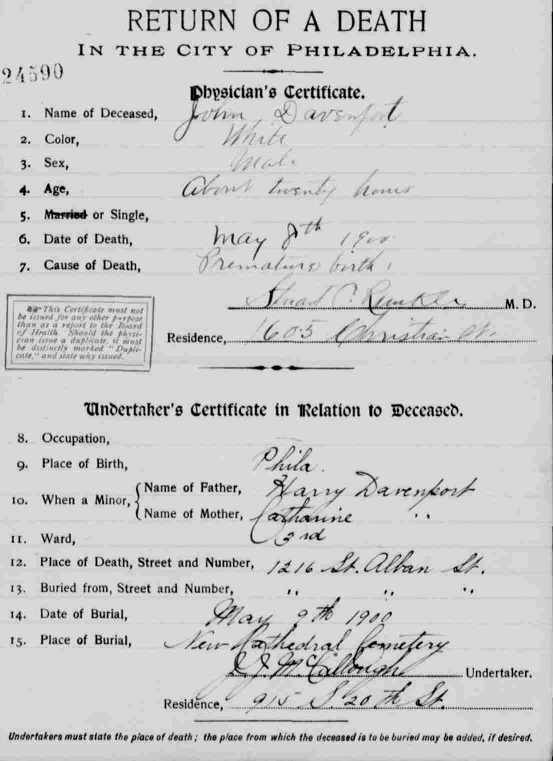 RETURN OF A DEATH
IN THE CITY OF PHILADELPHIA.
24590
Physician's Certificate.
1. Name of Deceased, John Davenport
2. Color, White
3. Sex, Male
4. Age, About twenty hours
5. Married or Single,
6. Date of Death, May 8th 1900
7. Cause of Death, Premature birth
Stuart C. M. D.
Residence, 1605 Christian St.
This Certificate must not
be issued for any other purpose
than as a report to the Board
of Health. Should the physi-
cian issue a duplicate, it must
be distinctly marked "Dupli-
cate," and state why issued.
Undertaker's Certificate in Relation to Deceased.
8. Occupation,
9. Place of Birth, Phila.
10. When a Minor, { Name of Father, Harry Davenport
Name of Mother, Catharine "
11. Ward, 3rd
12. Place of Death, Street and Number, 1216 St. Alban St.
13. Buried from, Street and Number, " " "
14. Date of Burial, May 9th 1900
15. Place of Burial, New Cathedral Cemetery
D. J. McCullough Undertaker.
Residence, 915 S. 20th St.
Undertakers must state the place of death; the place from which the deceased is to be buried may be added, if desired.